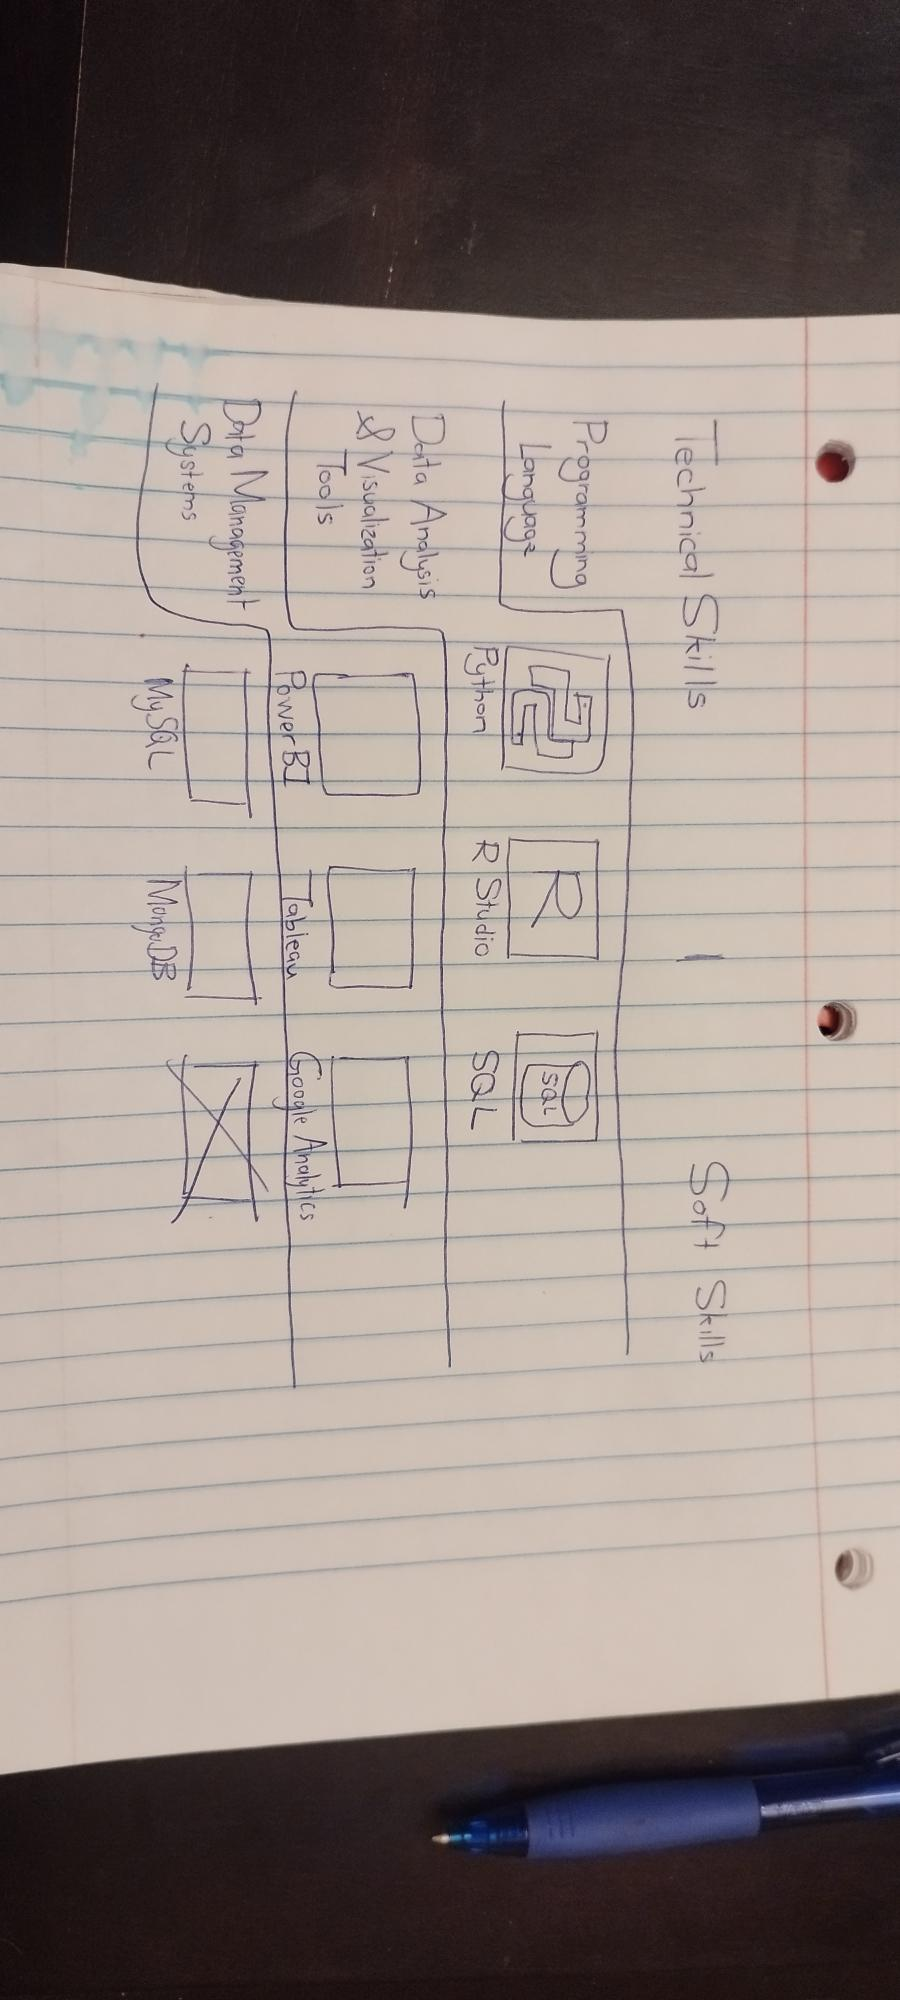 Technical Skills | Soft Skills
Programming
Language
R
SQL
Python
R Studio
SQL
Data Analysis
& Visualization
Tools
PowerBI
Tableau
Google Analytics
Data Management
Systems
MySQL
MongoDB